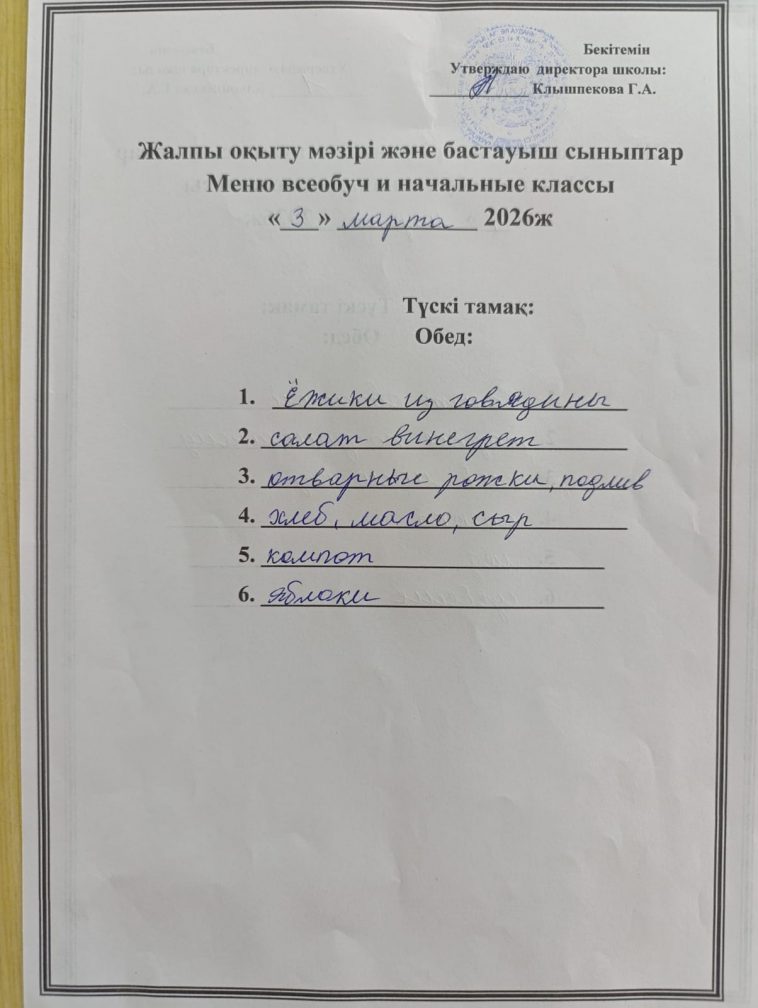 Бекітемін
Утверждаю директора школы:
Клышпекова Г.А.
Жалпы оқыту мәзірі және бастауыш сыныптар
Меню всеобуч и начальные классы
«3» марта 2026ж
Түскі тамақ:
Обед:
1. Ёжики из говядины
2. салат винегрет
3. отварные рожки, подлив
4. хлеб, масло, сыр
5. компот
6. яблоки